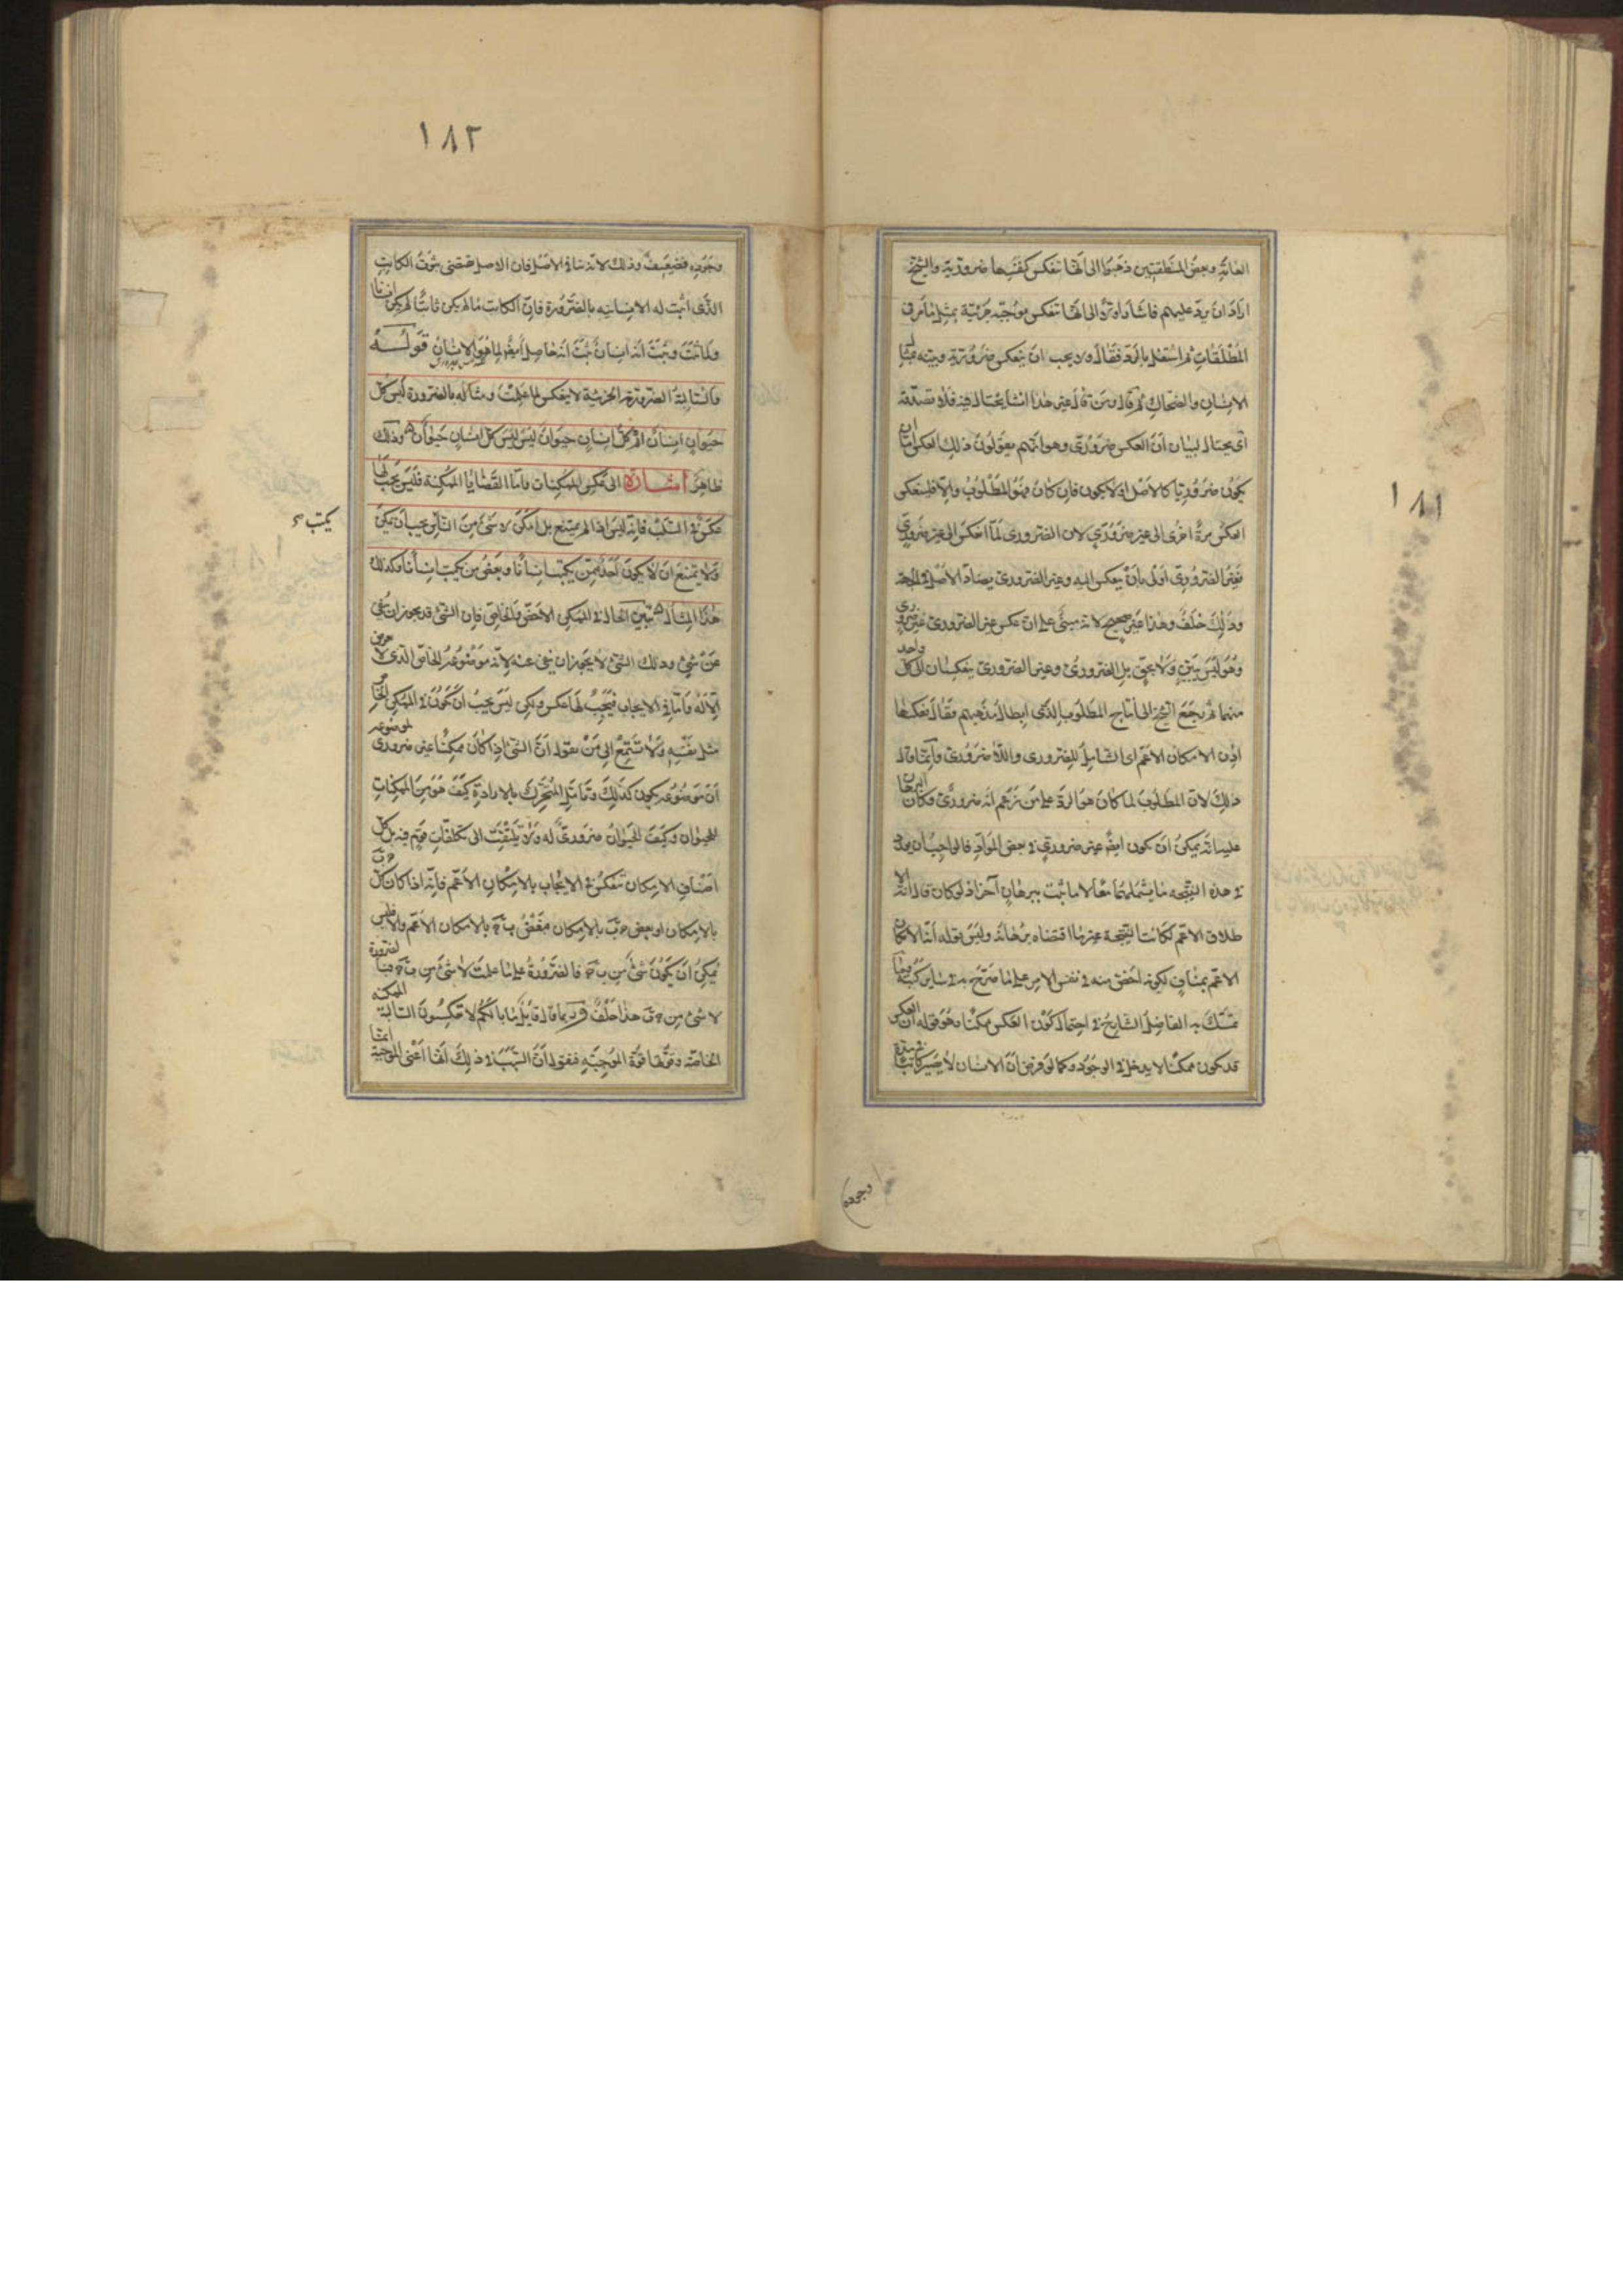 ١٨١
العامّة وبعض المنطقيّين ذهبوا الى انّها تنعكس كنفسها ضروريّة والشيخ
اراد ان يردّ عليهم فاشار اوّلاً الى انّها تنعكس موجبة جزئيّة بمثل ما مرّ فى
المطلقات ثم اشتغل بالردّ فقال ولا يجب ان ينعكس ضروريّة وبيّنه بمثال
الانسان والضحاك ثم قال ومن قال غير هذا انشا يحتال فيه فلا تصدّقه
اى يحتال لبيان انّ العكس ضرورىّ وهو انّهم يقولون ذلك العكس امّا ان
يكون ضروريّا كالاصل او لا يكون فان كان فهو المطلوب والّا فلينعكس
العكس مرة اخرى الى غير ضرورىّ لان الضرورى لمّا انعكس الى غير ضرورىّ
فغير الضرورىّ اولى بان ينعكس اليه وغير الضرورى يضادّ الاصل فى الجهة
وذلك خلف وهذا غير صحيح لانه مبنىّ على انّ عكس غير الضرورى غير ضرورى
وهو ليس ببيّن ولا بحقّ بل الضرورىّ وغير الضرورى ينعكسان الى كل واحد
منهما ثم رجع الشيخ الى انتاج المطلوب الذى ابطال مذهبهم فقال فعكسها
اذن الامكان الاعم اى الشامل للضرورى واللا ضرورى وانّما قال
ذلك لانّ المطلوب لما كان هو الردّ على من زعم انه ضرورىّ وكان البرهان
عليه انّه يمكن ان يكون ايضا غير ضرورىّ فى بعض الموادّ فالواجب ان يورد
فى هذه النتيجة ما يشملهما معا لا ما ثبت ببرهان آخر اذ لو كان قال انّه الا
طلاق الاعم لكانت النتيجة غير ما اقتضاه برهانه وليس بقوله انّها الامكان
الاعم بمناف لكونه اخصّ منه فى نفس الامر على ما صرّح به فى ساير كتبه فما
تمسّك به الفاضل الشارح فى احتمال كون العكس ممكنا وهو قوله ان العكس
قد يكون ممكنا لا يدخل فى الوجود كما لو فرض انّ الانسان لا يصير كاتبا فى مدة
وجوده
١٨٢
وجوده فضعيف وذلك لانه ينافى الاصل فان الاصل يقتضى ثبوت الكاتب
الذى اثبت له الانسانيه بالضرورة فانّ الكاتب ما لم يكن ثابتا لم يكن انسانا
ولما ثبت وثبت انه انسان ثبت انه حاصل ايضا لما هو الانسان قوله
والسالبة الضروريّة الجزئيّة لا ينعكس لما علمت ومثاله بالضرورة ليس كل
حيوان انسان ثم كلّ انسان حيوان ليس ليس كل انسان حيوان وذلك
ظاهر اشارة الى عكس الممكنات وامّا القضايا الممكنة فليس يجب لها
عكس فى السلب فانه ليس اذا لم يمتنع بل امكن لا شىء من الناس يكتب يجب ان يمكن
ولا يمتنع ان لا يكون احد ممّن يكتب انسانا وبعض من يكتب انسانا وكذلك
هذا المثال تبيّن الحال فى الممكن الاخصّ والخاصّ فان الشىء قد يجوز ان ينفى
عن شىء وذلك الشىء لا يجوز ان ينفى عنه لانّه موضوعه الخاصّ الذى لا يعرض
الّا له وامّا فى الايجاب فيجب لها عكس ولكن ليس يجب ان يكون فى الممكن الخاصّ
مثل نفسه ولا تستمع الى من يقول انّ الشىء اذا كان ممكنا غير ضرورى لموضوعه
انّ موضوعه يكون كذلك وتامّل المتحرّك بالارادة كيف هو من الممكنات
للحيوان وكيف الحيوان ضرورىّ له ولا يلتفت الى تكلّفات قوم فيه بل كل
اصناف الامكان تنعكس فى الايجاب بالامكان الاعم فانّه اذا كان كلّ ج ب
بالامكان او بعض ج ب بالامكان فبعض ب ج بالامكان الاعم والّا فليس
يمكن ان يكون شىء من ب ج فالضرورة على ما علمت لا شىء من ب ج فبالضرورة
لا شىء من ج ب هذا خلف وربما قال قايل ما بالكم لا تعكسون السالبة الممكنه
الخاصّة وقوّتها قوّة الموجبة فنقول انّ السبب فى ذلك انّها اعنى الموجبة انما
يكتب